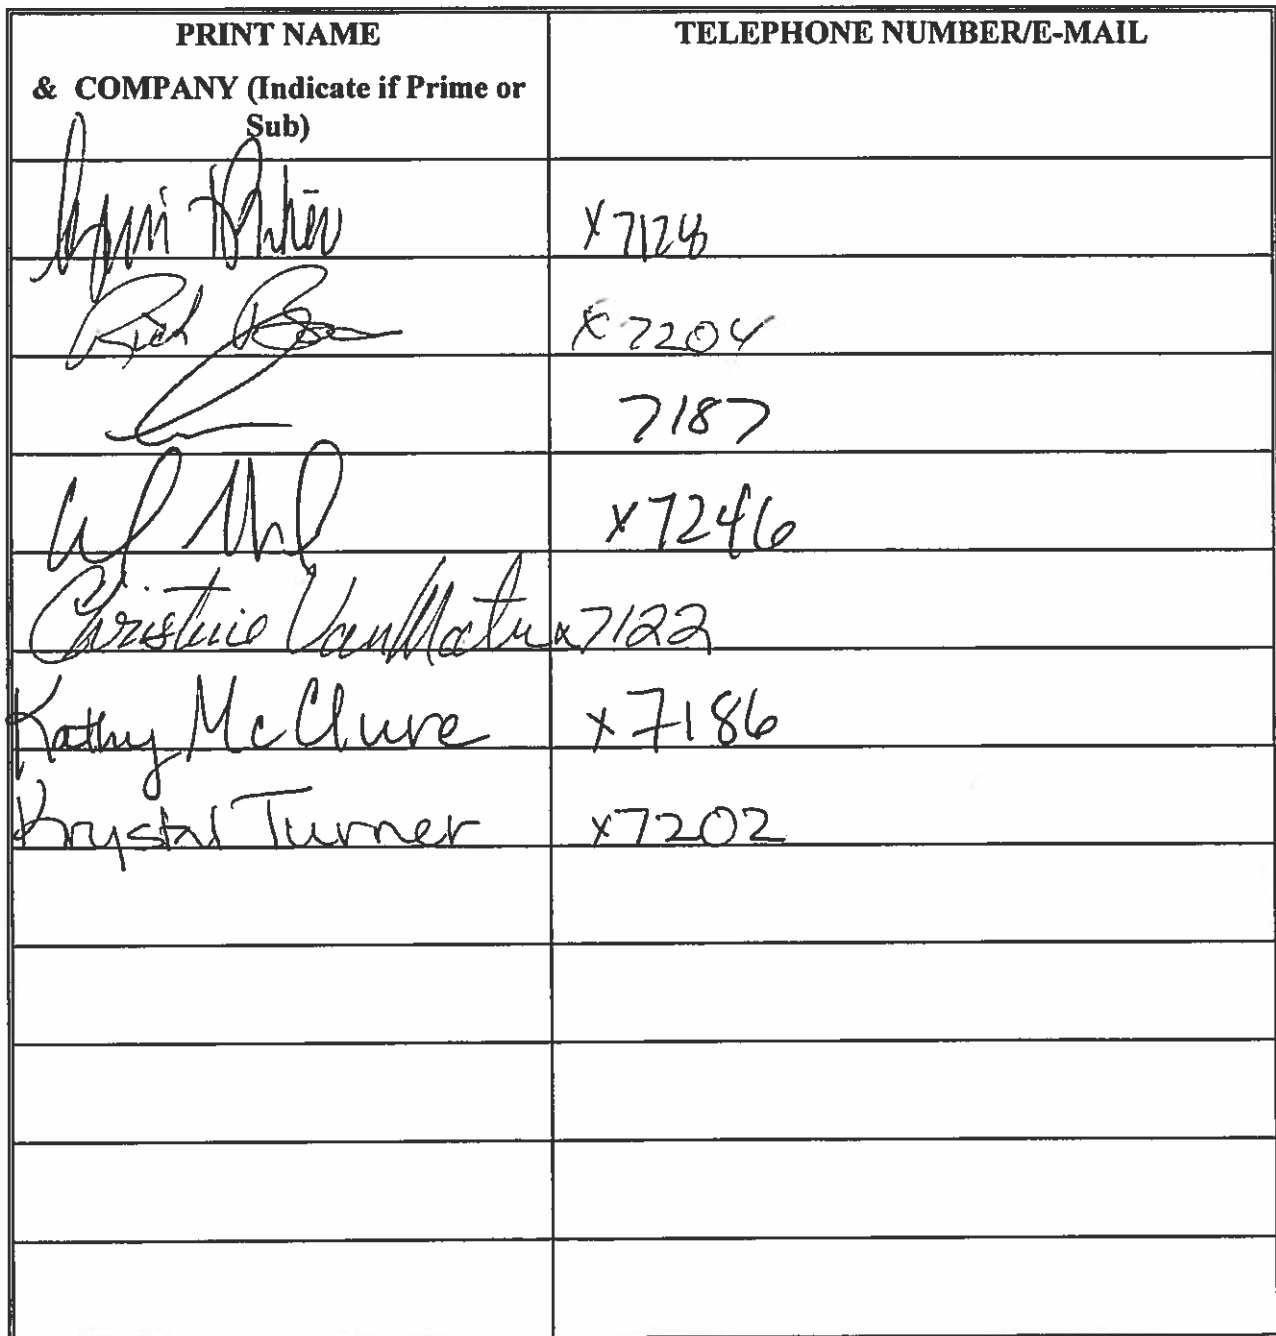 PRINT NAME
& COMPANY (Indicate if Prime or
Sub)
TELEPHONE NUMBER/E-MAIL
x7128
Rich
x7204
7187
x7246
Christine VanMatre x7122
Kathy McClure x7186
Krystal Turner x7202